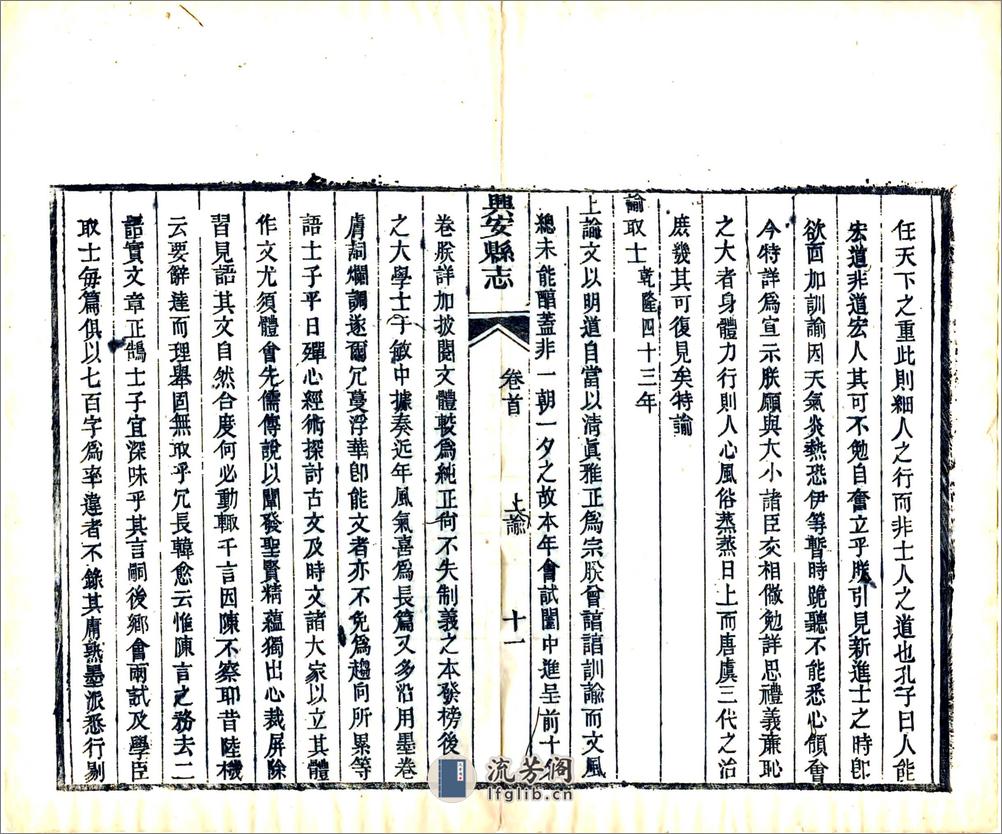 任天下之重此則細人之行而非士人之道也孔子曰人能
宏道非道宏人其可不勉自奮立乎朕引見新進士之時卽
欲面加訓諭因天氣炎熱恐伊等暫時跪聽不能悉心領會
今特詳爲宣示朕願與大小諸臣交相儆勉詳思禮義廉恥
之大者身體力行則人心風俗蒸蒸日上而唐虞三代之治
庶幾其可復見矣特諭
諭取士乾隆四十三年
上諭文以明道自當以清眞雅正爲宗朕曾諳諳訓諭而文風
總未能醇蓋非一朝一夕之故本年會試闈中進呈前十
興安縣志
卷首
上諭
十一
卷朕詳加披閱文體較爲純正尙不失制義之本發榜後
之大學士于敏中據奏近年風氣喜爲長篇又多沿用墨卷
膚詞爛調遂爾冗蔓浮華卽能文者亦不免爲趨向所累等
語士子平日殫心經術探討古文及時文諸大家以立其體
作文尤須體會先儒傳說以闡發聖賢精蘊獨出心裁屏除
習見語其文自然合度何必動輒千言因陳不察耶昔陸機
云要辭達而理舉固無取乎冗長韓愈云惟陳言之務去二
語實文章正鵠士子宜深味乎其言嗣後鄉會兩試及學臣
取士每篇俱以七百字爲率違者不錄其庸熟墨派悉行剔
流芳阁
lfglib.cn